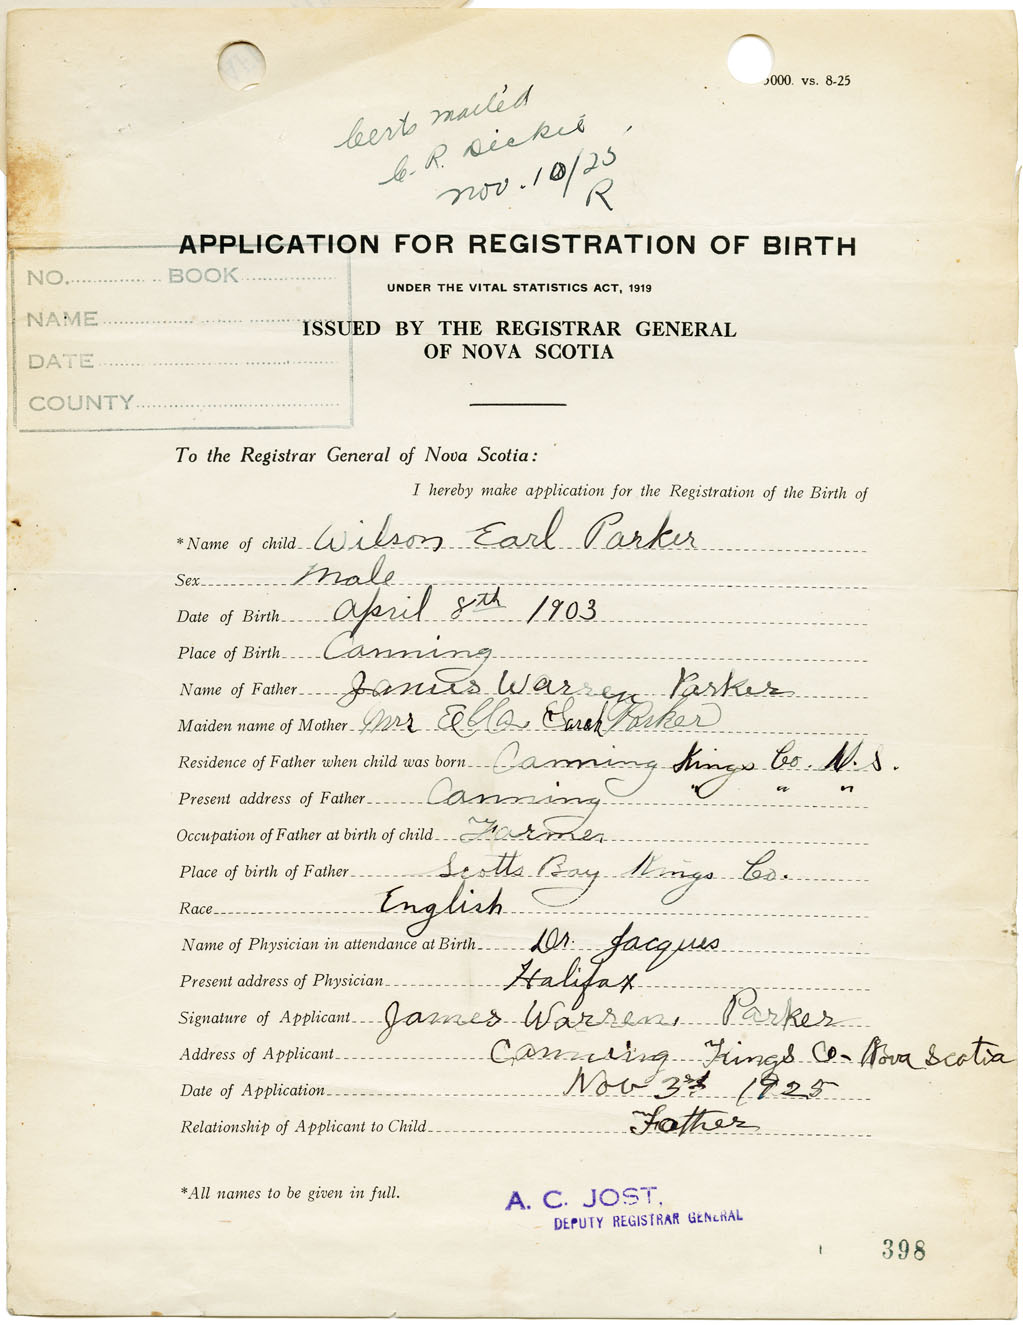 000. vs. 8-25
Certs mailed
C. R. Dickie,
Nov. 10/25
R
APPLICATION FOR REGISTRATION OF BIRTH
UNDER THE VITAL STATISTICS ACT, 1919
ISSUED BY THE REGISTRAR GENERAL
OF NOVA SCOTIA
NO. BOOK
NAME
DATE
COUNTY
To the Registrar General of Nova Scotia:
I hereby make application for the Registration of the Birth of
*Name of child Wilson Earl Parker
Sex Male
Date of Birth April 8th 1903
Place of Birth Canning
Name of Father James Warren Parker
Maiden name of Mother Mrs Ella Sarah Parker
Residence of Father when child was born Canning Kings Co. N.S.
Present address of Father Canning " " "
Occupation of Father at birth of child Farmer
Place of birth of Father Scotts Bay Kings Co.
Race English
Name of Physician in attendance at Birth Dr. Jacques
Present address of Physician Halifax
Signature of Applicant James Warren Parker
Address of Applicant Canning Kings Co- Nova Scotia
Date of Application Nov 3rd 1925
Relationship of Applicant to Child Father
*All names to be given in full.
A. C. JOST,
DEPUTY REGISTRAR GENERAL
398